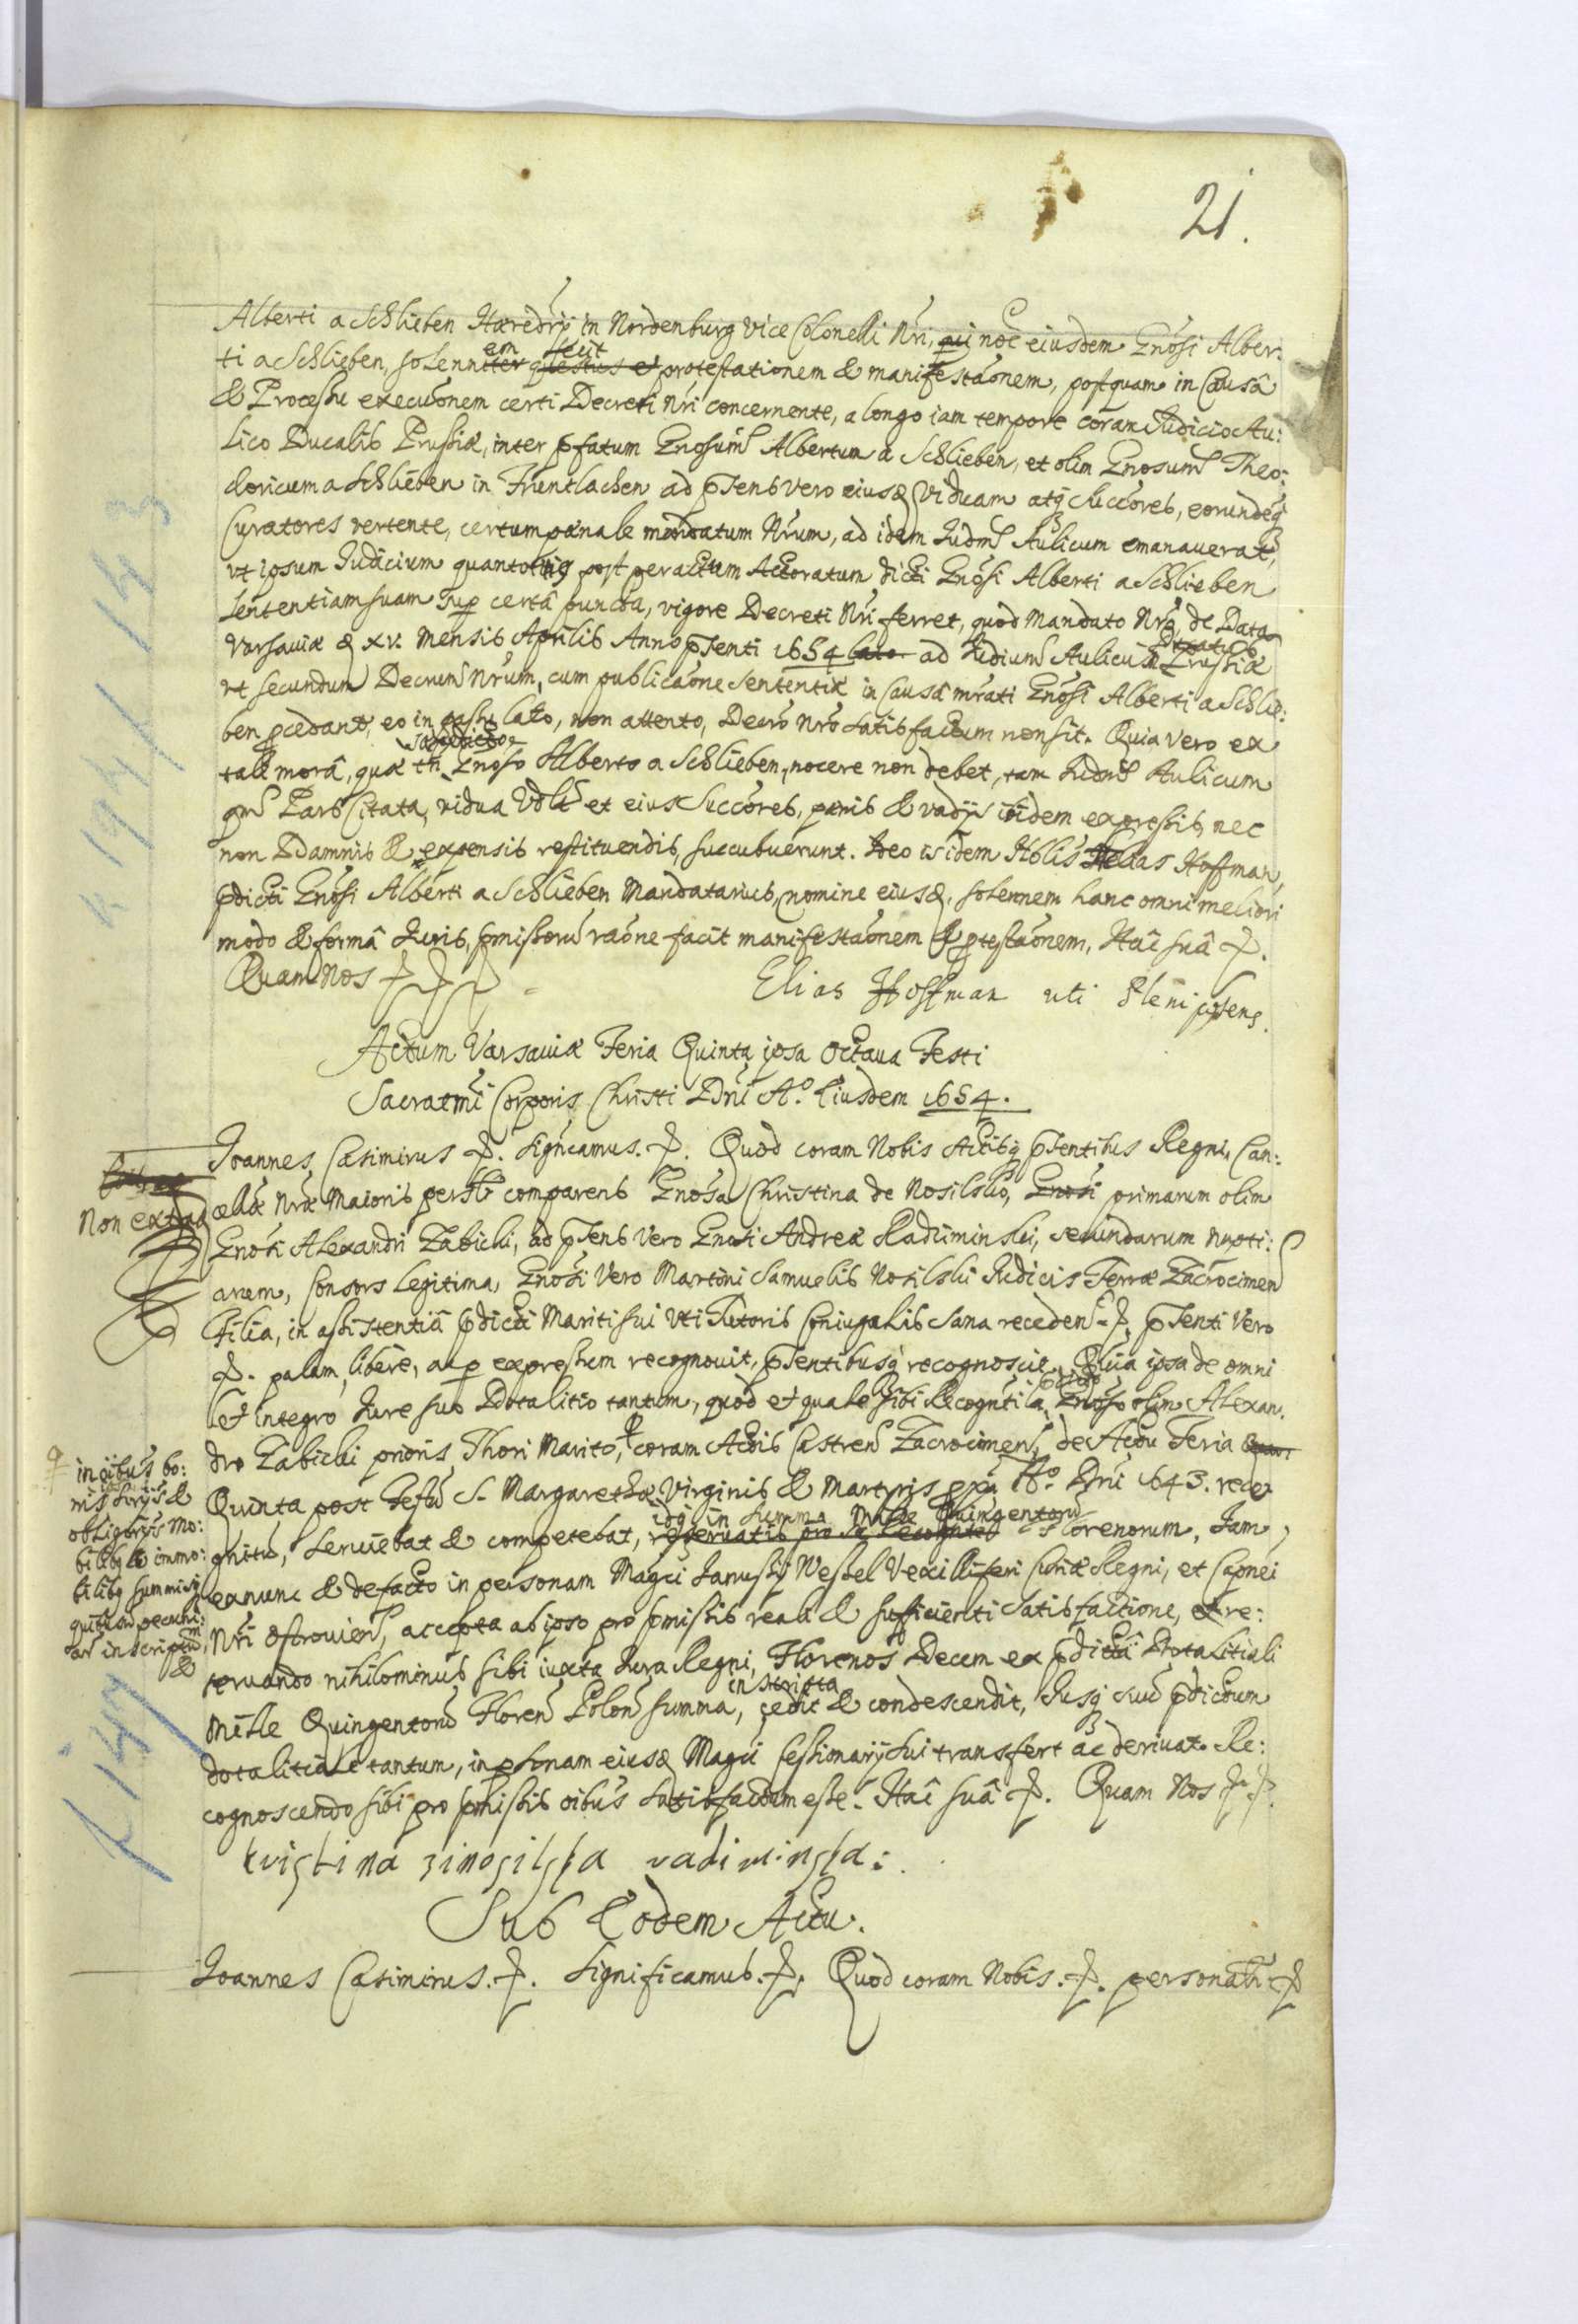 21.
Alberti a Schlieben Hæredis in Nordenburg Vice Colonelli Nri, qui noe eiusdem Gnosi Alber:
ti a Schlieben, solenniter em questus et fecit protestationem & manifestaonem, postquam in Causâ
& Processu executionem certi Decreti Nri concernente, a longo iam tempore coram Iudicio Au:
lico Ducalis Prussiæ, inter pfatum Gnosum Albertum a Schlieben, et olim Gnosum Theo:
doricum a Schlieben in Truntlachen ad pñs vero eiusd Viduam atq Succores, eorundeq
Curatores vertente, certum pænale mandatum Nrum, ad idem Iudm Aulicum emanauerat,
vt ipsum Iudicium quantotius post peractum Actoratum dicti Gnosi Alberti a Schlieben
Sententiam suam sup certâ puncta, vigore Decreti Nri ferret, quod Mandato Nro, de Data
Varsauiæ d xv. Mensis Aprilis Anno pñti 1654 lato ad Iudium Aulicum Ducatus Prussiæ
vt secundum Decrum Nrum, cum publicaone Sententiæ in Causâ mrati Gnosi Alberti a Schlie:
ben pcedant, eo in passu lato, non attento, Decro Nro satisfactum non sit. Quia vero ex
tali morâ, quæ tñ supradicto Gnoso Alberto a Schlieben, nocere non debet, tam Iudm Aulicum
qm Pars Citata, vidua Vdlt et eius Succores, pænis & vadijs ibidem expressis, nec
non Damnis & expensis restituendis, succubuerunt. Ideo isidem Nblis Helias Hoffman,
pdicti Gnosi Alberti a Schlieben Mandatarius, nomine eiusd, solennem hanc omni meliori
modo & formâ Iuris, pmissoru raone facit manifestaonem & ptestaonem, Itaî suâ &.
Quam Nos &&&
Elias Hoffman uti Plenipotens.
Actum Varsauiæ Feria Quinta ipsa Octaua Festi
Sacratmi Corporis Christi Dni Ao. Eiusdem 1654.
Ioannes Casimirus &. Signcamus. &. Quod coram Nobis Actisq pñtibus Regni, Can:
Non extrad
cellæ Nræ Maioris persltr comparens Gnosa Christina de Nosilsko, Gnosi primarum olim
Gnosi Alexandri Zabicki, ad pñs Vero Gnosi Andreæ Radziminski, secundarum nupti:
arum, Consors Legitima, Gnosi Vero Martini Samuelis Nosilski Iudicis Terræ Zacrocimen
Filia, in assistentiâ pdicti Mariti sui Vti Tutoris Coniugalis sana recedens &. pñti Vero
&. palam, libere, ac p expressum recognouit, pñtibusq recognoscit, Quia ipsa de omni
et integro Iure suo Dotalitio tantum, quod et quale sibi Recognti a Gnoso olim Alexan.
dro Zabicki prioris Thori Marito, coram Actis Castren Zacrocimen, de Actu Feria
Quinta post Festu S. Margarethæ Virginis & Martyris pxa Ao. Dni 1643. reco
gnitu, seruiebat & competebat, idq in summa Mille Quingentoru reseruatis Florenorum, Iam
exnunc & defacto in personam Magci Ianussij Wessel Vexilliferi Curiæ Regni, et Capnei
Nri Ostrouien, accepta ab ipso pro pmissis reali & sufficienti satisfactione, et re:
seruando nihilominus sibi iuxta Iura Regni, Florenos Decem ex pdictâ Dotalitiali
Mille Quingentoru Floren Polon summa, inscripta cedit & condescendit, Iusq suu pdictum
dotalitiale tantum, in psonam eiusd Magci Cessionarij sui transfert ac deriuat. Re:
cognoscendo sibi pro pmissis oibus satisfactum esse. Itaî suâ &. Quam Nos &.&.
in oibus bo:
nis &
obligtorijs Mo:
bilibq & immo:
bilibq summisq
quibusd pecuni:
ar inscriptu
&
kristina zinosilska radziminska:
Sub Eodem Actu.
Ioannes Casimirus. &. Significamus. &. Quod coram Nobis. &. personaltr &